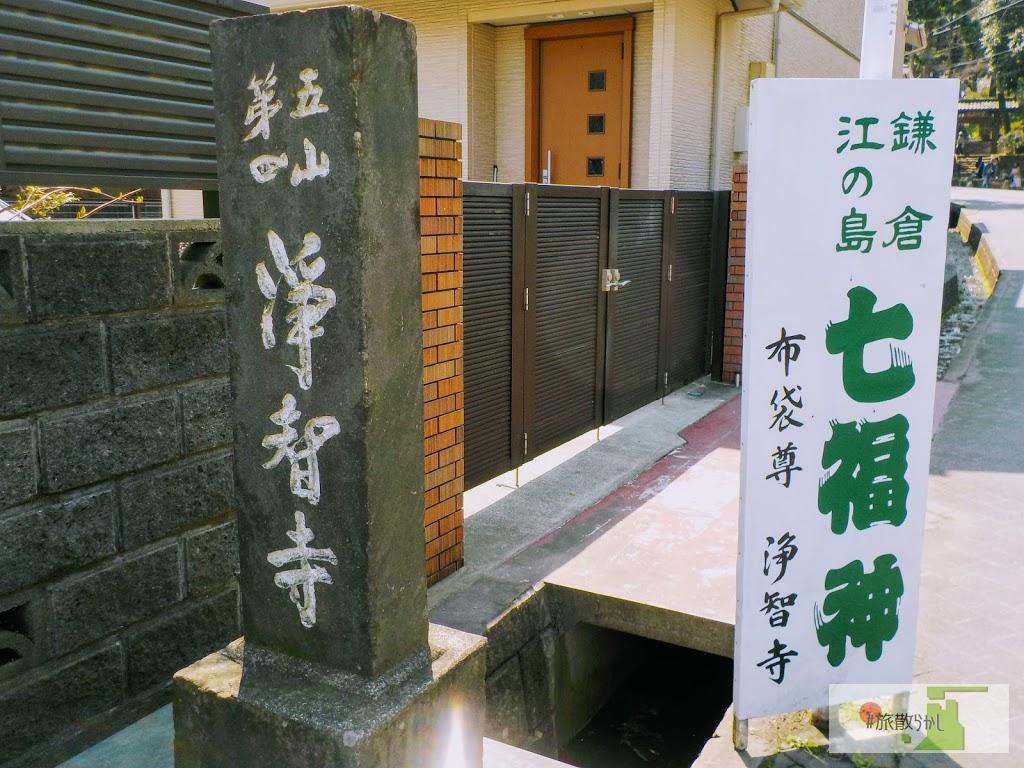 五山
第四
淨智寺
鎌倉
江の島
七福神
布袋尊 浄智寺
#旅散らかし